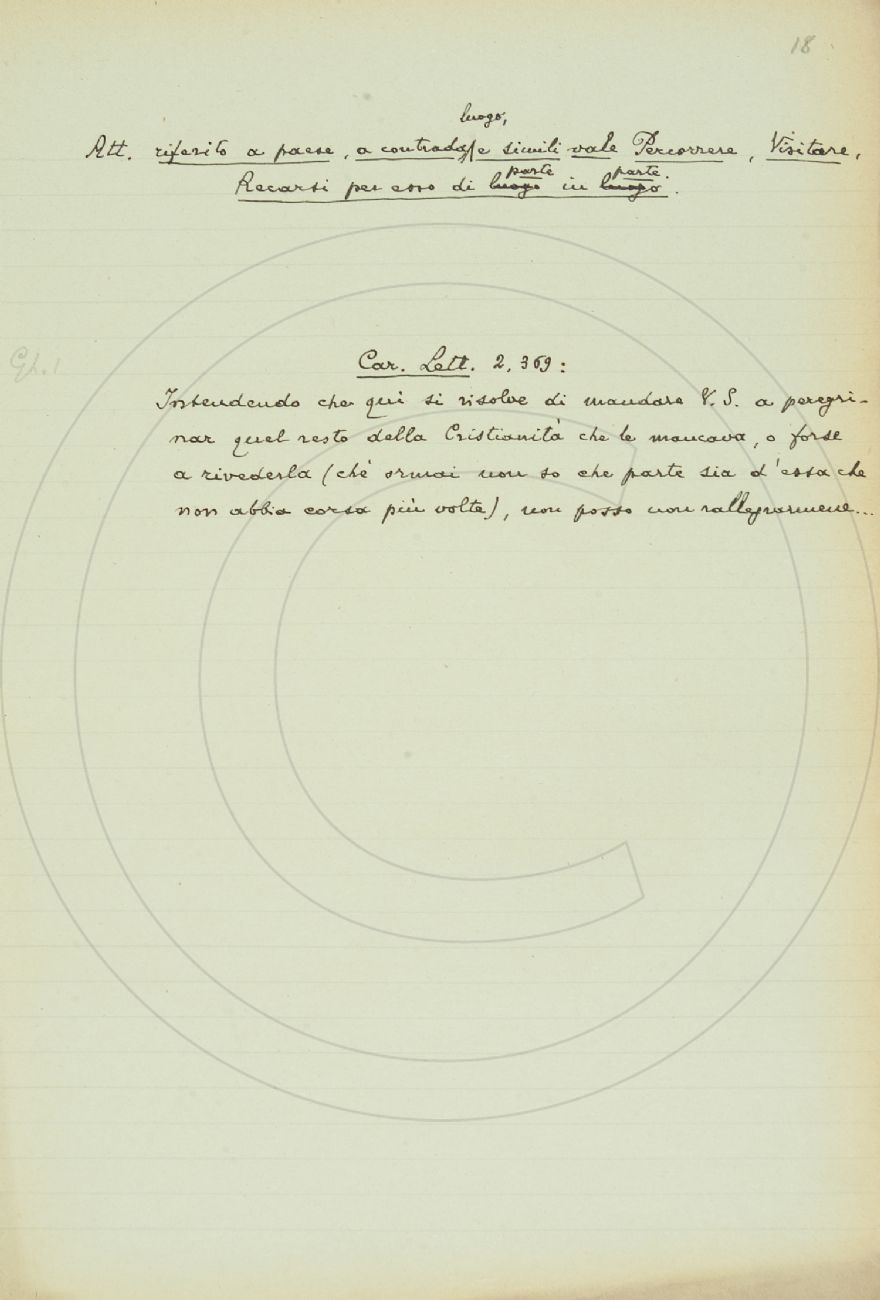 18
luogo,
Att. riferito a paese, a contrada, e simili vale Percorrere, Visitare,
parte parte.
Recarsi per esso di luogo in luogo.
Gh. 1
Car. Lett. 2, 369:
Intendendo che qui si risolve di mandare V. S. a peregri-
nar quel resto della Cristianità che le mancava, o forse
a rivederla (chè ormai non so che parte sia d'essa che
non abbia corsa più volte), non posso non rallegrarmene...